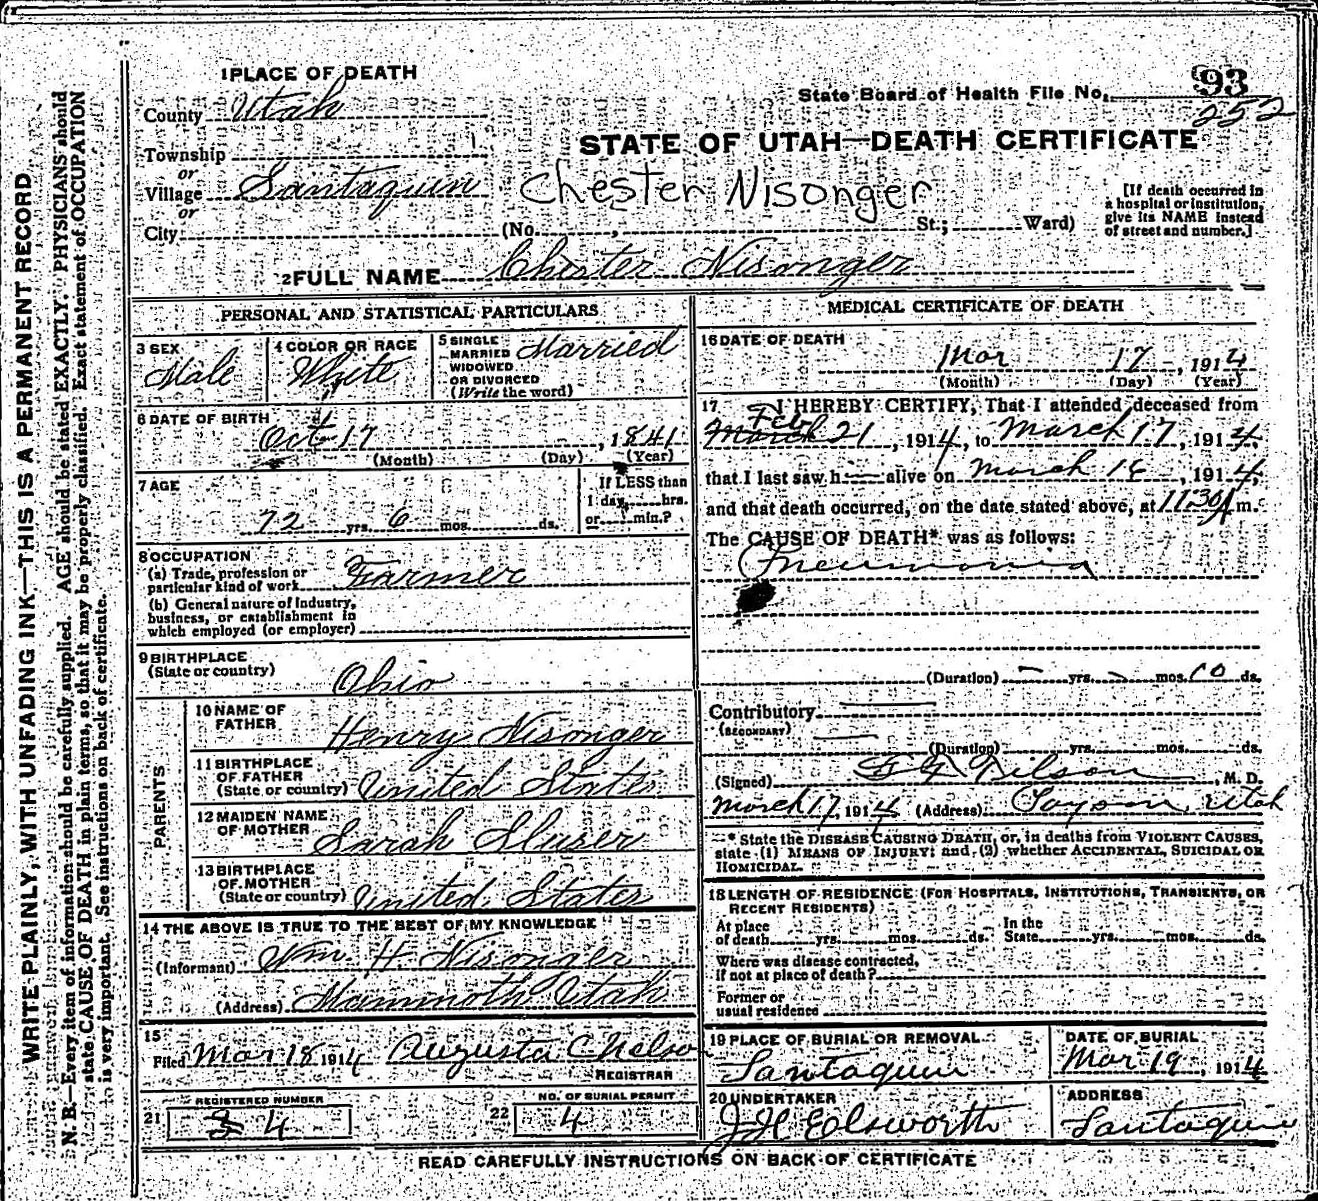 1 PLACE OF DEATH
State Board of Health File No. 93
252
County Utah
STATE OF UTAH—DEATH CERTIFICATE
Township
or
Village Santaquin
Chester Nisonger
or
City (No. , St.; Ward)
[If death occurred in
a hospital or institution,
give its NAME instead
of street and number.]
2 FULL NAME Chester Nisonger
PERSONAL AND STATISTICAL PARTICULARS
3 SEX
Male
4 COLOR OR RACE
White
5 SINGLE
MARRIED
WIDOWED
OR DIVORCED
(Write the word)
Married
6 DATE OF BIRTH
Oct 17, 1841
(Month) (Day) (Year)
7 AGE
72 yrs. 6 mos. ds.
If LESS than
1 day, hrs.
or min.?
8 OCCUPATION
(a) Trade, profession or
particular kind of work Farmer
(b) General nature of Industry,
business, or establishment in
which employed (or employer)
9 BIRTHPLACE
(State or country)
Ohio
PARENTS
10 NAME OF
FATHER
Henry Nisonger
11 BIRTHPLACE
OF FATHER
(State or country) United States
12 MAIDEN NAME
OF MOTHER
Sarah Sluser
13 BIRTHPLACE
OF MOTHER
(State or country) United States
14 THE ABOVE IS TRUE TO THE BEST OF MY KNOWLEDGE
(Informant) Wm. H. Nisonger
(Address) Mammoth Utah
15
Filed Mar 18 1914 Augusta C Nelson
REGISTRAR
REGISTERED NUMBER
21 3 4
NO. OF BURIAL PERMIT
22 4
MEDICAL CERTIFICATE OF DEATH
16 DATE OF DEATH
Mar 17, 1914
(Month) (Day) (Year)
17 I HEREBY CERTIFY, That I attended deceased from
Feb
March 21, 1914, to March 17, 1914,
that I last saw h— alive on March 16, 1914,
and that death occurred, on the date stated above, at 11:30 A m.
The CAUSE OF DEATH* was as follows:
Pneumonia
(Duration) - yrs. - mos. 10 ds.
Contributory
(SECONDARY)
(Duration) yrs. mos. ds.
(Signed) , M. D.
March 17, 1914 (Address) Payson, Utah
* State the DISEASE CAUSING DEATH, or, in deaths from VIOLENT CAUSES,
state (1) MEANS OF INJURY; and (2) whether ACCIDENTAL, SUICIDAL OR
HOMICIDAL.
18 LENGTH OF RESIDENCE (FOR HOSPITALS, INSTITUTIONS, TRANSIENTS, OR
RECENT RESIDENTS)
At place
of death yrs. mos. ds.
In the
State yrs. mos. ds.
Where was disease contracted,
if not at place of death?
Former or
usual residence
19 PLACE OF BURIAL OR REMOVAL
Santaquin
DATE OF BURIAL
Mar 19, 1914
20 UNDERTAKER
J H Eolsworth
ADDRESS
Santaquin
READ CAREFULLY INSTRUCTIONS ON BACK OF CERTIFICATE
WRITE PLAINLY, WITH UNFADING INK—THIS IS A PERMANENT RECORD
N. B.—Every item of information should be carefully supplied. AGE should be stated EXACTLY. PHYSICIANS should
state CAUSE OF DEATH in plain terms, so that it may be properly classified. Exact statement of OCCUPATION
is very important. See instructions on back of certificate.